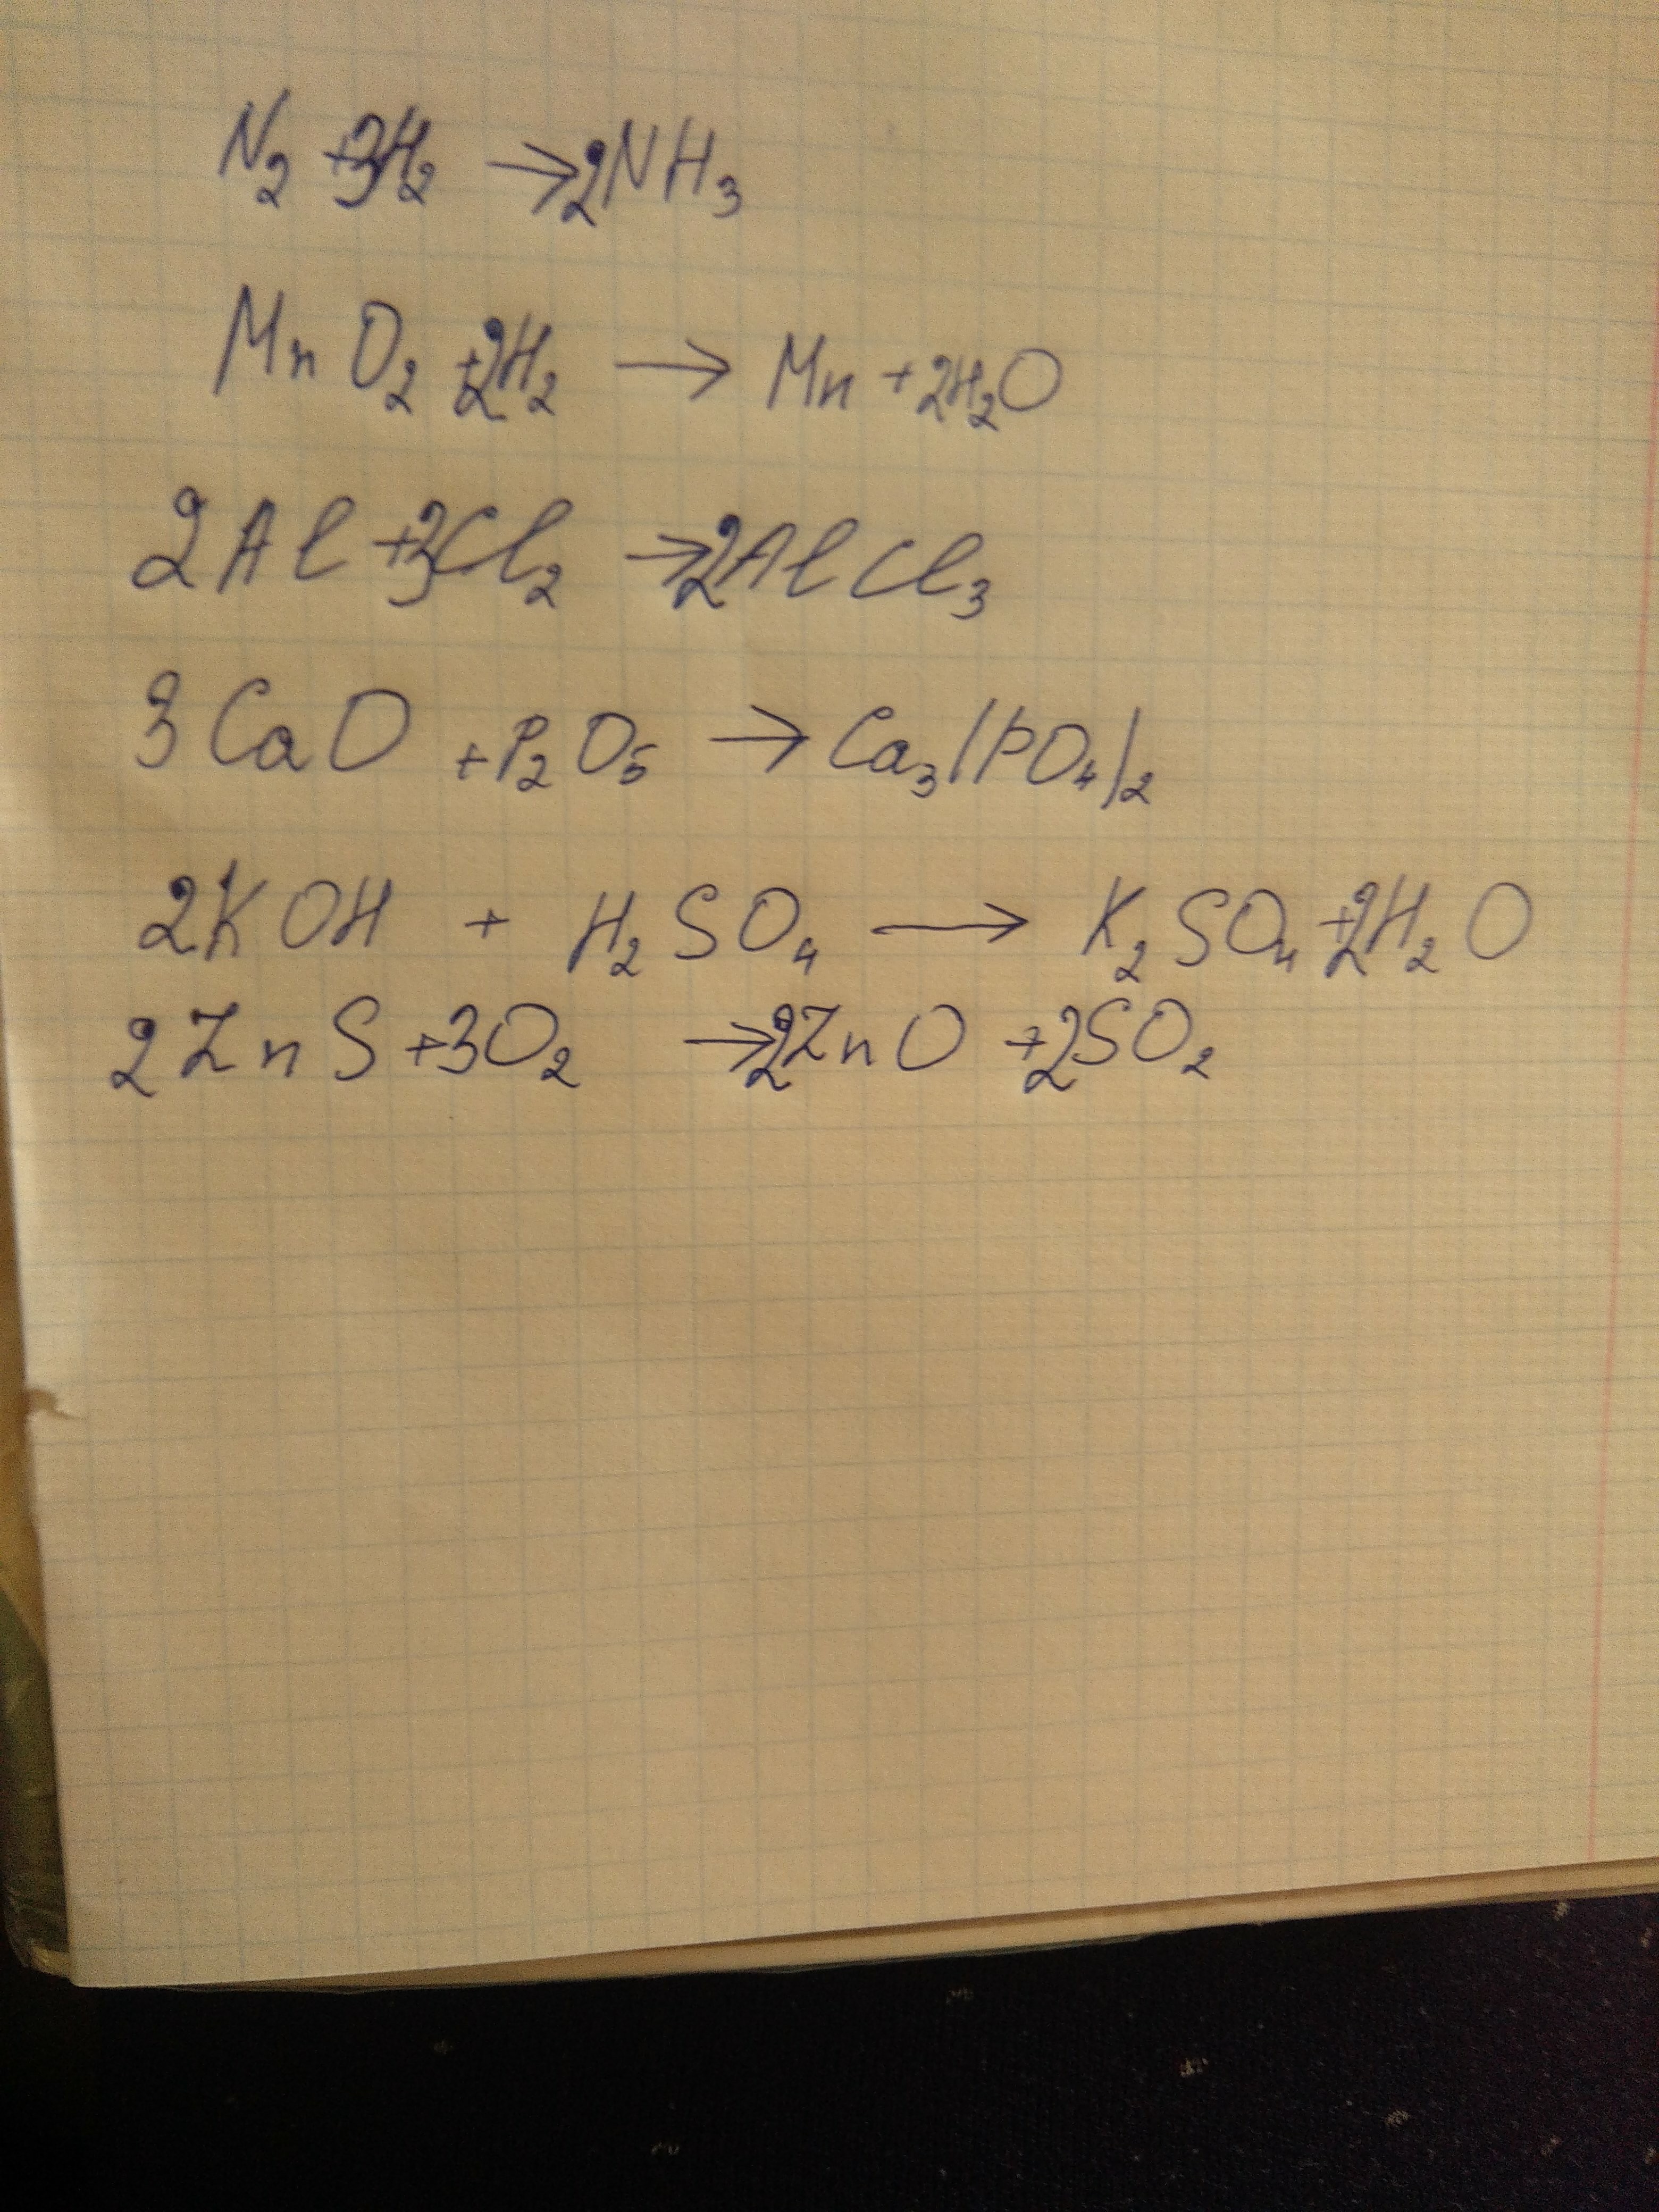 N₂ + 3H₂ → 2NH₃
MnO₂ + 2H₂ → Mn + 2H₂O
2Al + 3Cl₂ → 2AlCl₃
3CaO + P₂O₅ → Ca₃(PO₄)₂
2KOH + H₂SO₄ → K₂SO₄ + 2H₂O
2ZnS + 3O₂ → 2ZnO + 2SO₂